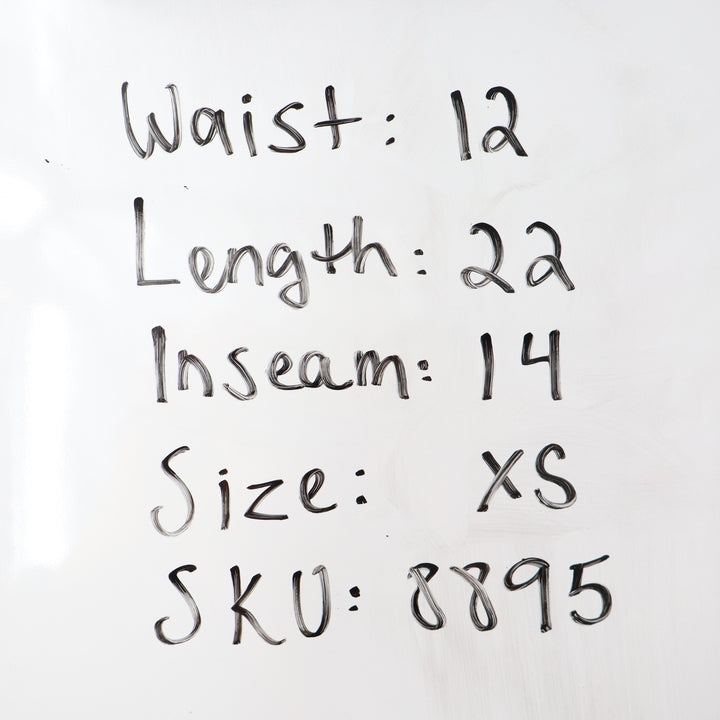 Waist: 12
Length: 22
Inseam: 14
Size: XS
SKU: 8895